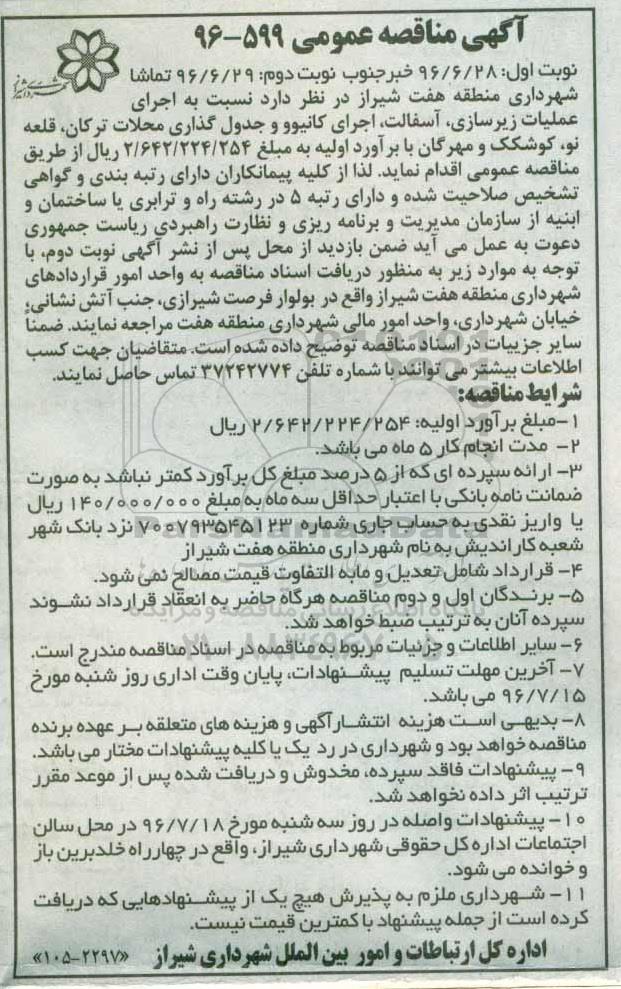 آگهی مناقصه عمومی ۵۹۹-۹۶
نوبت اول: ۹۶/۶/۲۸ خبرجنوب نوبت دوم: ۹۶/۶/۲۹ تماشا
شهرداری منطقه هفت شیراز در نظر دارد نسبت به اجرای
عملیات زیرسازی، آسفالت، اجرای کانیوو و جدول گذاری محلات ترکان، قلعه
نو، کوشکک و مهرگان با برآورد اولیه به مبلغ ۲/۶۴۲/۲۲۴/۲۵۴ ریال از طریق
مناقصه عمومی اقدام نماید. لذا از کلیه پیمانکاران دارای رتبه بندی و گواهی
تشخیص صلاحیت شده و دارای رتبه ۵ در رشته راه و ترابری یا ساختمان و
ابنیه از سازمان مدیریت و برنامه ریزی و نظارت راهبردی ریاست جمهوری
دعوت به عمل می آید ضمن بازدید از محل پس از نشر آگهی نوبت دوم، با
توجه به موارد زیر به منظور دریافت اسناد مناقصه به واحد امور قراردادهای
شهرداری منطقه هفت شیراز واقع در بولوار فرصت شیرازی، جنب آتش نشانی،
خیابان شهرداری، واحد امور مالی شهرداری منطقه هفت مراجعه نمایند. ضمناً
سایر جزییات در اسناد مناقصه توضیح داده شده است. متقاضیان جهت کسب
اطلاعات بیشتر می توانند با شماره تلفن ۳۷۲۴۲۷۷۴ تماس حاصل نمایند.
شرایط مناقصه:
۱-مبلغ برآورد اولیه: ۲/۶۴۲/۲۲۴/۲۵۴ ریال
۲- مدت انجام کار ۵ ماه می باشد.
۳- ارائه سپرده ای که از ۵ درصد مبلغ کل برآورد کمتر نباشد به صورت
ضمانت نامه بانکی با اعتبار حداقل سه ماه به مبلغ ۱۴۰/۰۰۰/۰۰۰ ریال
یا واریز نقدی به حساب جاری شماره ۷۰۰۷۹۳۵۴۵۱۲۳ نزد بانک شهر
شعبه کاراندیش به نام شهرداری منطقه هفت شیراز
۴- قرارداد شامل تعدیل و مابه التفاوت قیمت مصالح نمی شود.
۵- برندگان اول و دوم مناقصه هرگاه حاضر به انعقاد قرارداد نشوند
سپرده آنان به ترتیب ضبط خواهد شد.
۶- سایر اطلاعات و جزئیات مربوط به مناقصه در اسناد مناقصه مندرج است.
۷- آخرین مهلت تسلیم پیشنهادات، پایان وقت اداری روز شنبه مورخ
۹۶/۷/۱۵ می باشد.
۸- بدیهی است هزینه انتشارآگهی و هزینه های متعلقه بر عهده برنده
مناقصه خواهد بود و شهرداری در رد یک یا کلیه پیشنهادات مختار می باشد.
۹- پیشنهادات فاقد سپرده، مخدوش و دریافت شده پس از موعد مقرر
ترتیب اثر داده نخواهد شد.
۱۰- پیشنهادات واصله در روز سه شنبه مورخ ۹۶/۷/۱۸ در محل سالن
اجتماعات اداره کل حقوقی شهرداری شیراز، واقع در چهارراه خلدبرین باز
و خوانده می شود.
۱۱- شهرداری ملزم به پذیرش هیچ یک از پیشنهادهایی که دریافت
کرده است از جمله پیشنهاد با کمترین قیمت نیست.
اداره کل ارتباطات و امور بین الملل شهرداری شیراز «۲۲۹۷-۱۰۵»